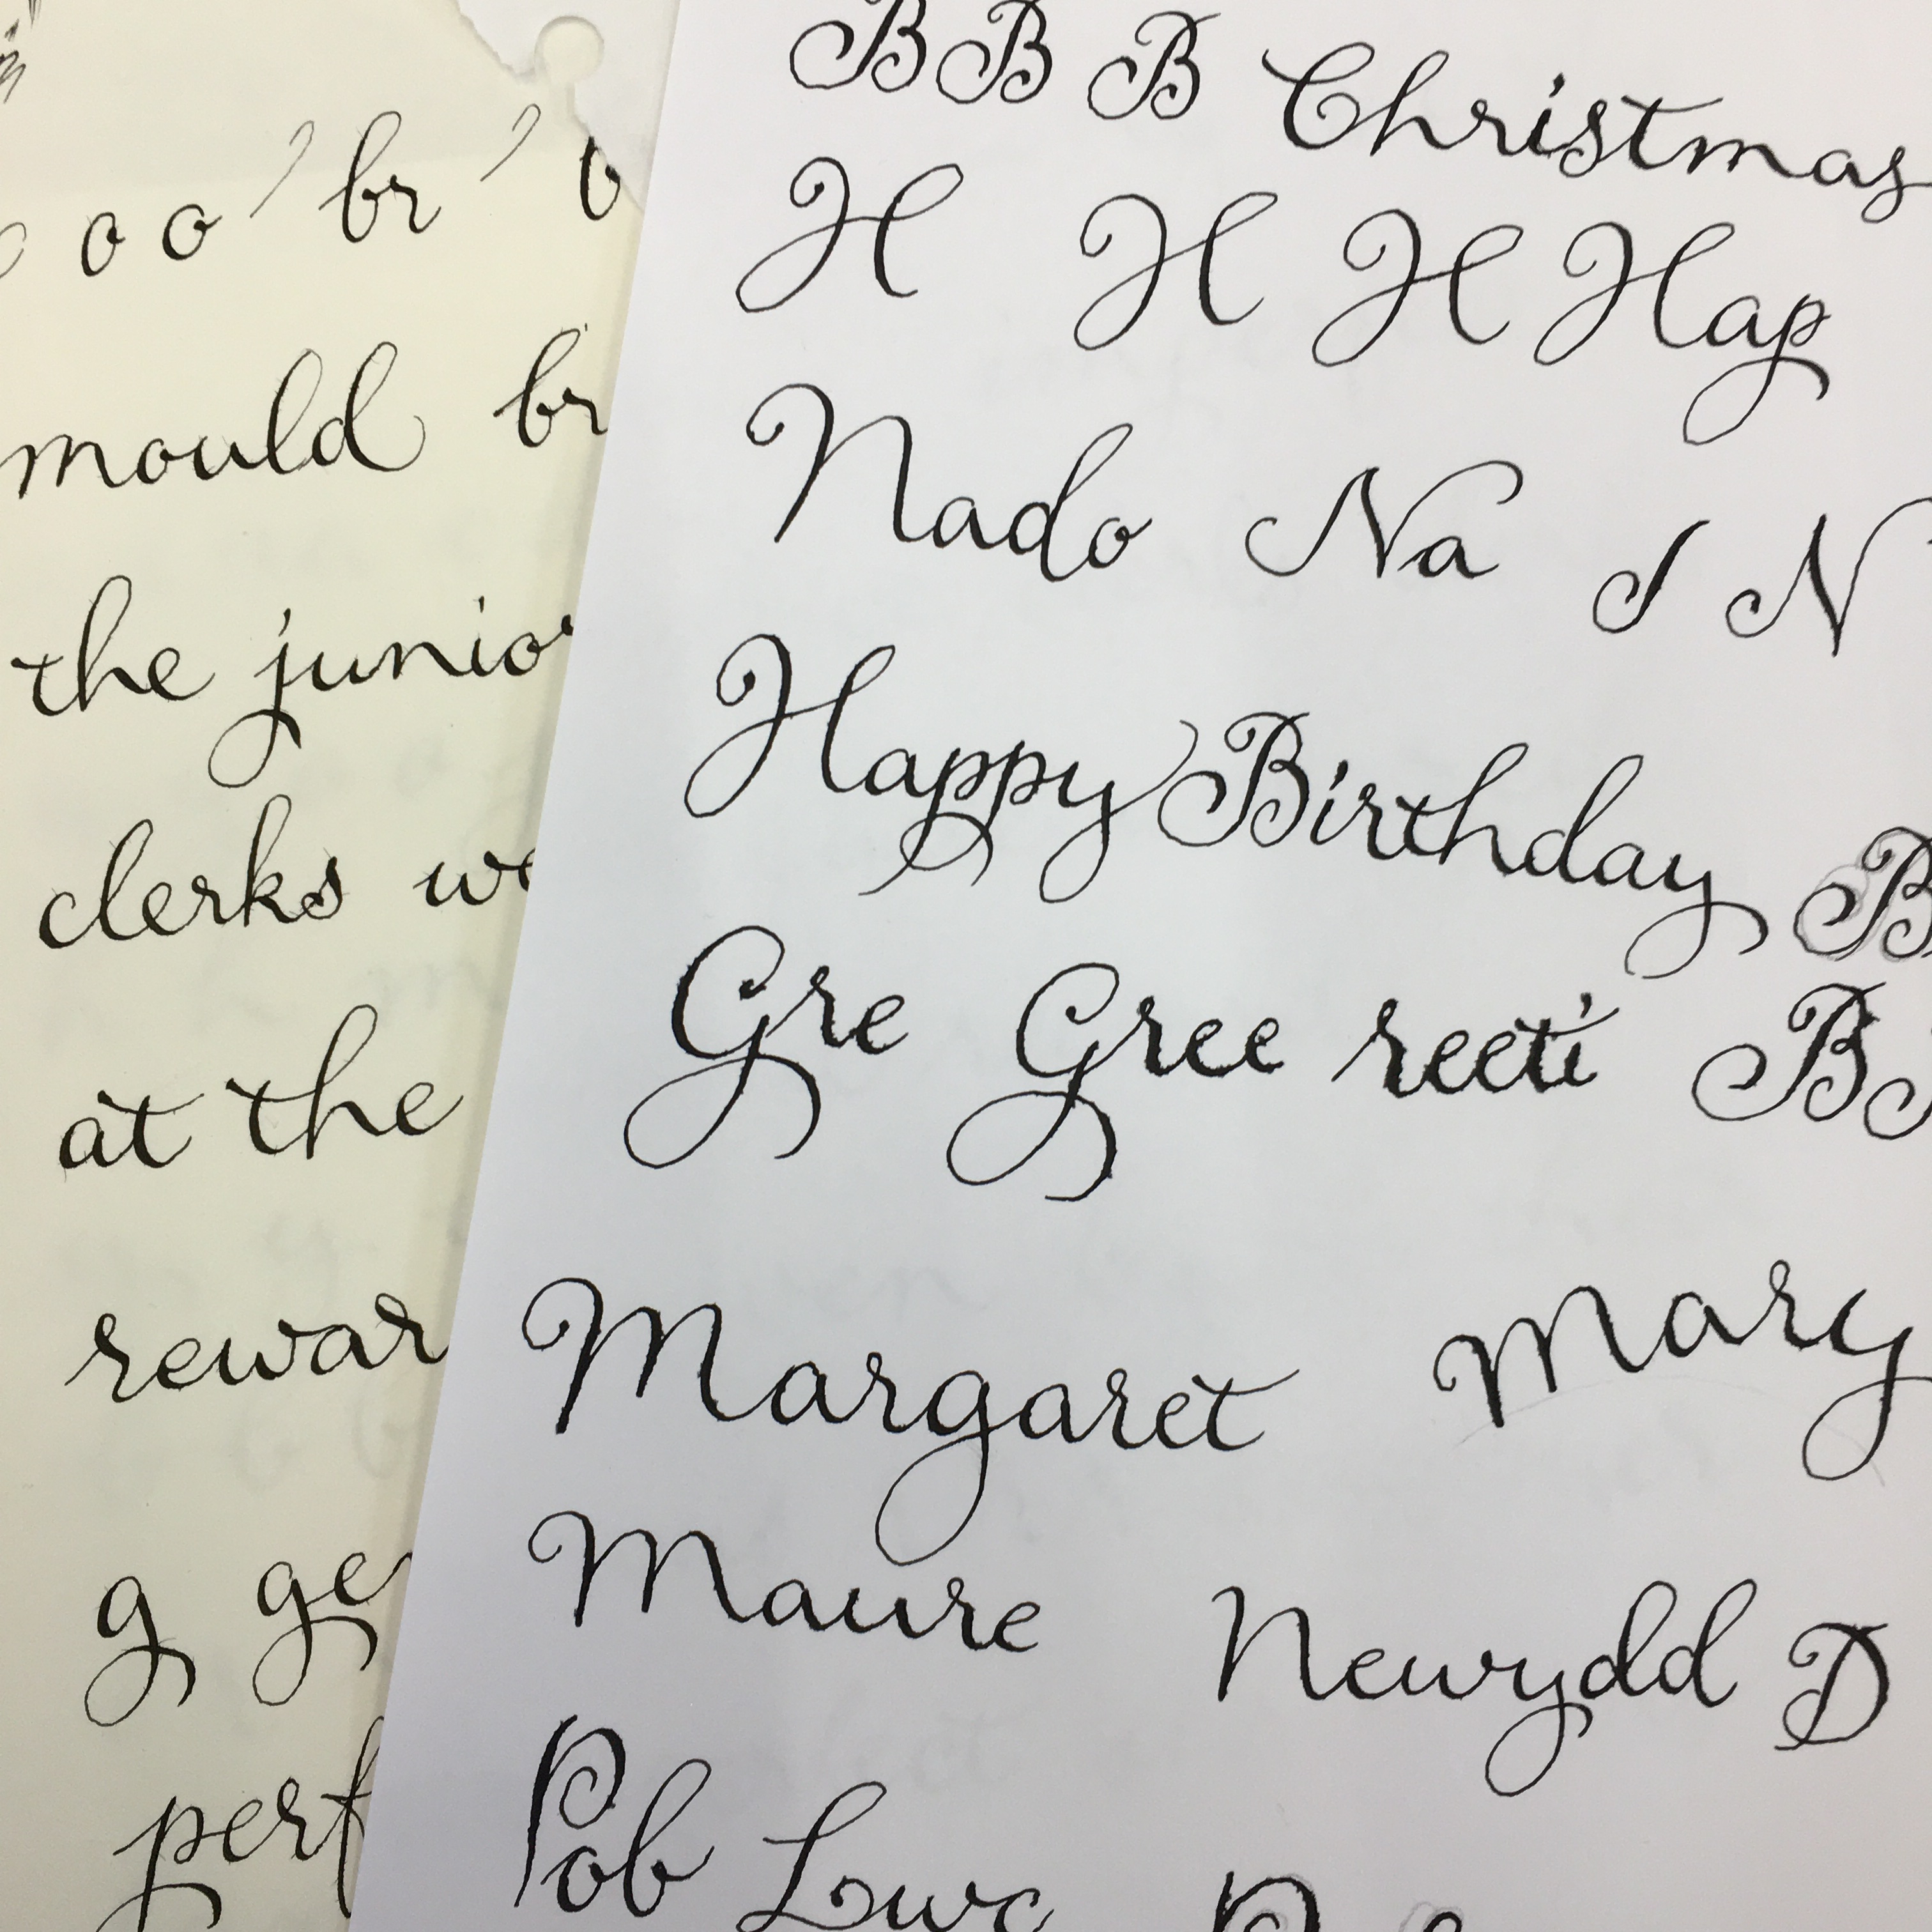 o o o br b
mould br
the junior
clerks we
at the
rewar
g ge
perf
B B B Christmas
H H H Hap
Nado Na N
Happy Birthday B
Gre Gree reeti B B
Margaret Mary
Maure Newydd D
Pob Lwc